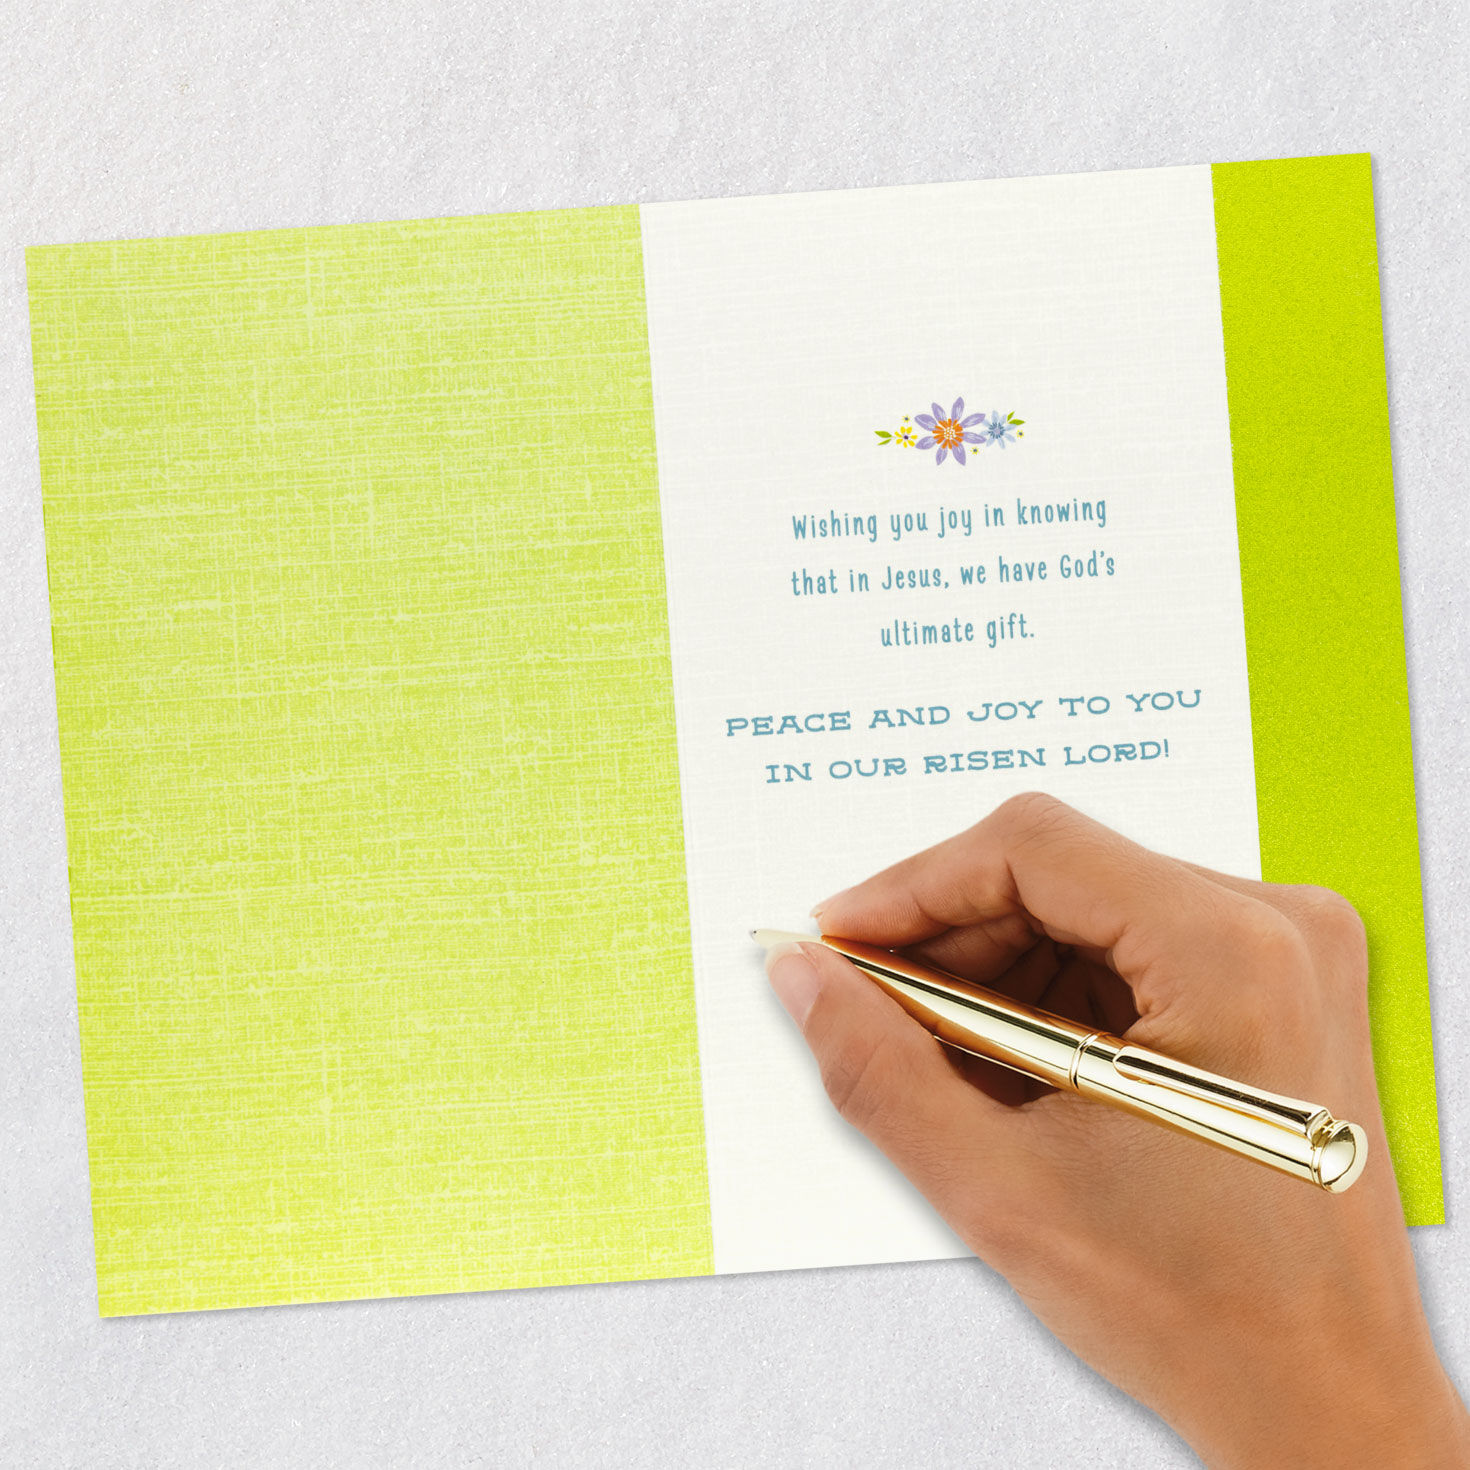 Wishing you joy in knowing
that in Jesus, we have God's
ultimate gift.
PEACE AND JOY TO YOU
IN OUR RISEN LORD!